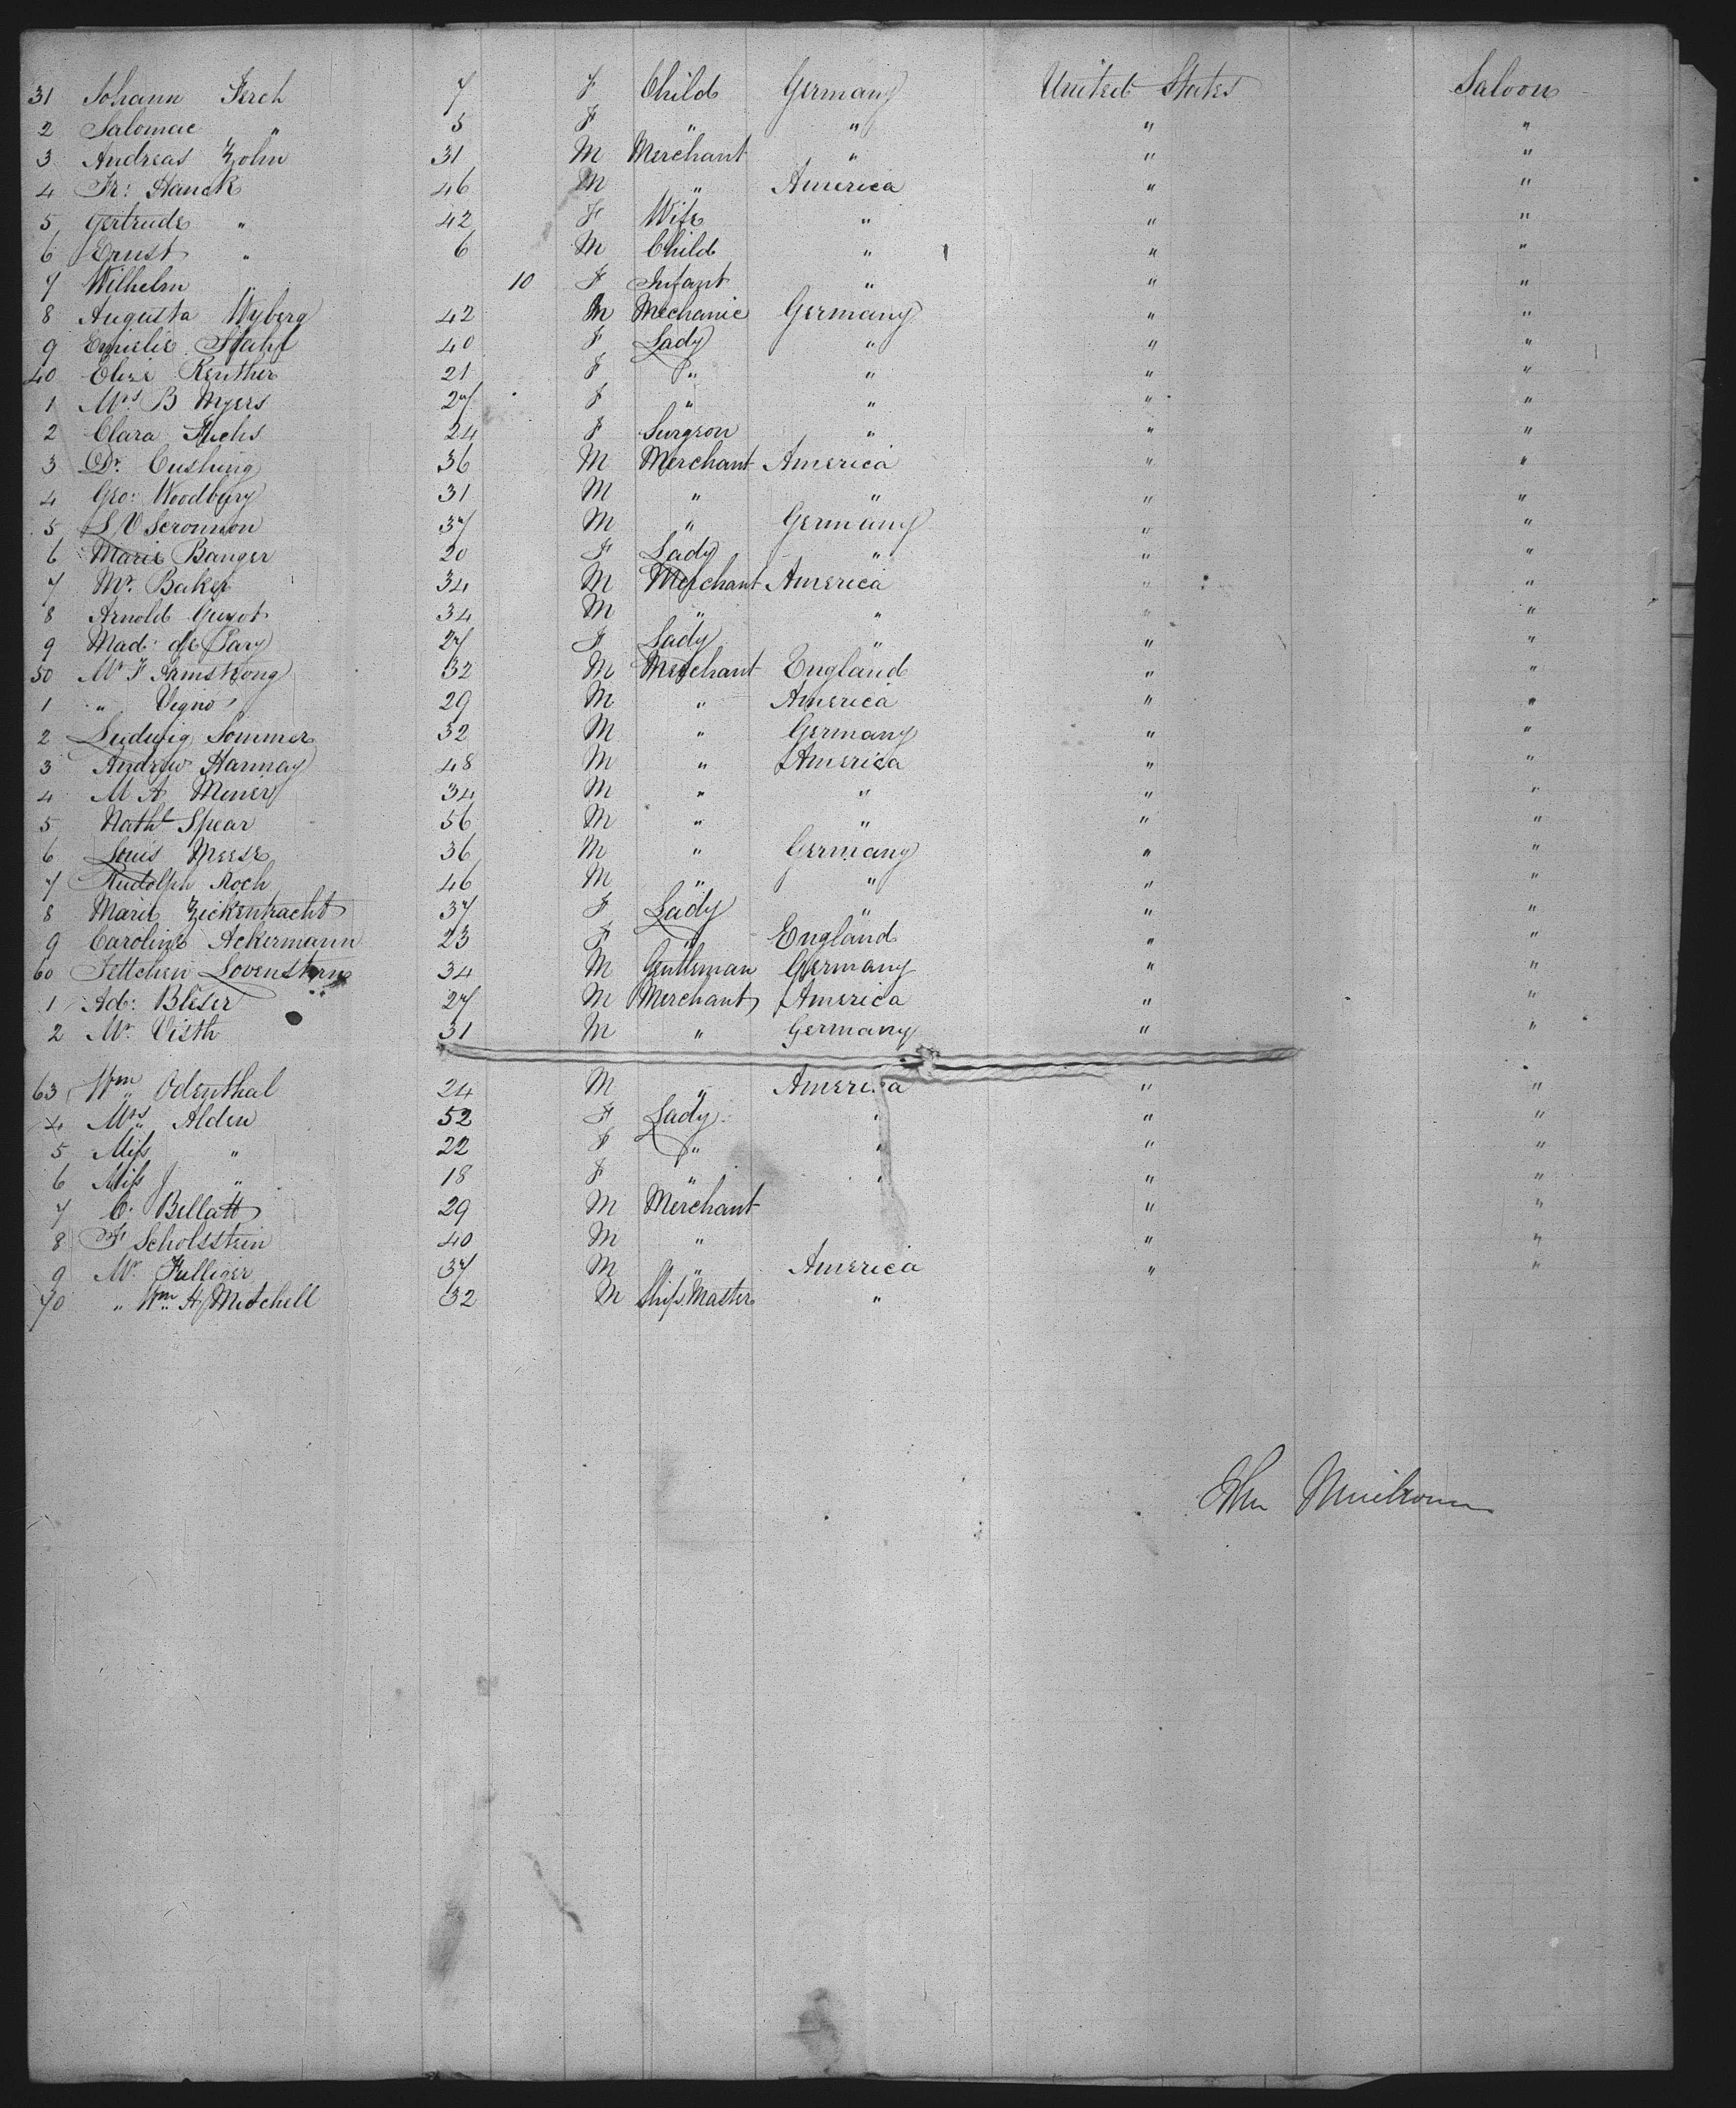 31 Johann Ferch 7 F Child Germany United States Saloon
2 Salomae " 5 F " " " "
3 Andreas Zohn 31 M Merchant " " "
4 Fr: Hanck 46 M " America " "
5 Gertrude " 42 F Wife " " "
6 Ernst " 6 M Child " " "
7 Wilhelm " 10 F Infant " " "
8 Augusta Wyberg 42 M Mechanic Germany " "
9 Emielie Stahl 40 F Lady " " "
40 Elize Renther 21 F " " " "
1 Mrs B Myers 27 F " " " "
2 Clara Fuchs 24 F Surgeon " " "
3 Dr. Cushing 36 M Merchant America " "
4 Geo: Woodbury 31 M " " " "
5 S V Seronnon 37 M " Germany " "
6 Marie Banger 20 F Lady " " "
7 Mr. Baker 34 M Merchant America " "
8 Arnold Guyot 34 M " " " "
9 Mad: de Pary 27 F Lady " " "
50 Mr F Armstrong 32 M Merchant England " "
1 " Vigno 29 M " America " "
2 Ludwig Sommer 32 M " Germany " "
3 Andrew Hannay 48 M " America " "
4 M A Miner 34 M " " " "
5 Nathl Spear 56 M " " " "
6 Louis Meese 36 M " Germany " "
7 Rudolph Koch 46 M " " " "
8 Marie Zickentracht 37 F Lady " " "
9 Caroline Ackermann 23 F " England " "
60 Jettchen Lovenstern 34 M Gentleman Germany " "
1 Ad: Bleser 27 M Merchant America " "
2 Mr. Visth 31 M " Germany " "
63 Wm Odenthal 24 M " America " "
4 Mrs Alden 52 F Lady " " "
5 Miss " 22 F " " " "
6 Miss J " 18 F " " " "
7 C. Bellatt 29 M Merchant " "
8 F Scholsstein 40 M " " "
9 Mr. Fulliger 37 M " America " "
70 " Wm H Mitchell 32 M Ship Master "